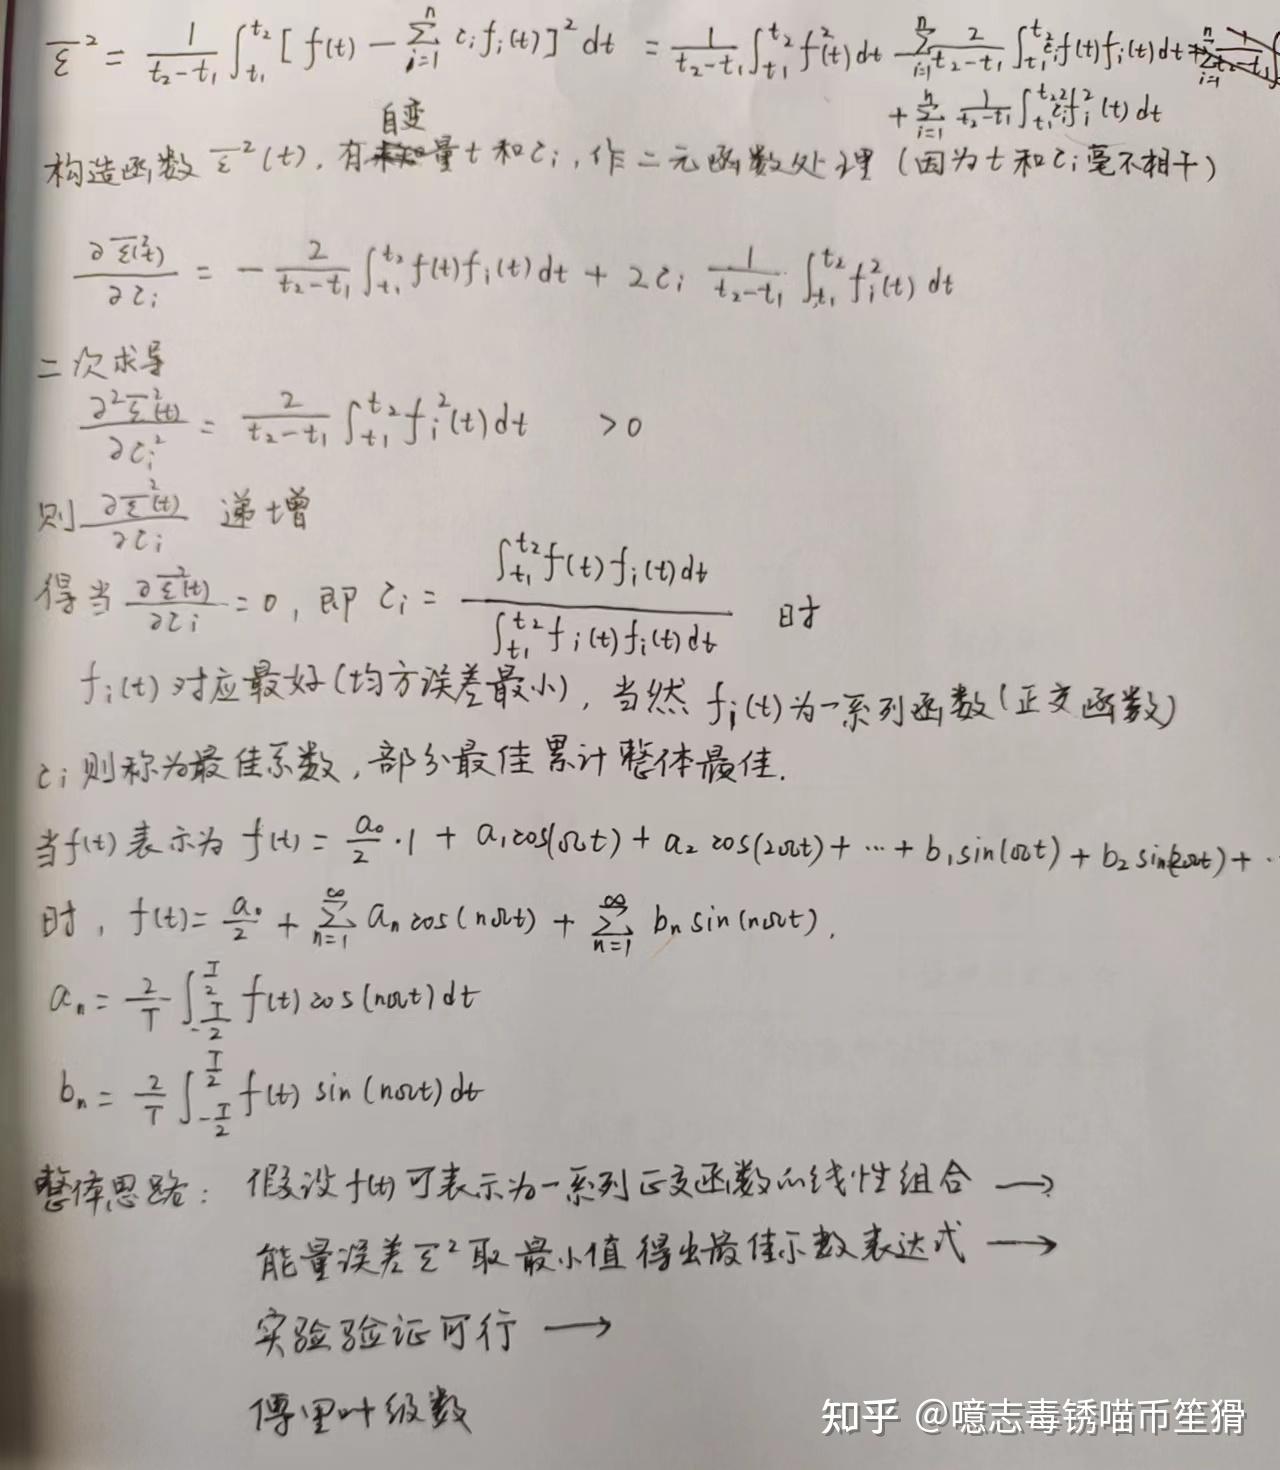 ε̄² = 1/(t₂-t₁) ∫_{t₁}^{t₂} [f(t) - Σ_{i=1}^{n} c_i f_i(t)]² dt = 1/(t₂-t₁) ∫_{t₁}^{t₂} f²(t) dt - Σ_{i=1}^{n} 2/(t₂-t₁) ∫_{t₁}^{t₂} c_i f(t) f_i(t) dt
+ Σ_{i=1}^{n} 1/(t₂-t₁) ∫_{t₁}^{t₂} c_i² f_i²(t) dt
构造函数 ε̄²(t), 有自变量 t 和 c_i, 作二元函数处理 (因为 t 和 c_i 毫不相干)
∂ε̄²(t)/∂c_i = - 2/(t₂-t₁) ∫_{t₁}^{t₂} f(t) f_i(t) dt + 2c_i 1/(t₂-t₁) ∫_{t₁}^{t₂} f_i²(t) dt
二次求导
∂²ε̄²(t)/∂c_i² = 2/(t₂-t₁) ∫_{t₁}^{t₂} f_i²(t) dt >0
则 ∂ε̄²(t)/∂c_i 递增
得当 ∂ε̄²(t)/∂c_i = 0, 即 c_i = ∫_{t₁}^{t₂} f(t) f_i(t) dt / ∫_{t₁}^{t₂} f_i(t) f_i(t) dt 时
f_i(t) 对应最好(均方误差最小), 当然 f_i(t) 为一系列函数(正交函数)
c_i 则称为最佳系数, 部分最佳累计整体最佳.
当f(t) 表示为 f(t) = a₀/2 · 1 + a₁cos(Ωt) + a₂ cos(2Ωt) + ··· + b₁sin(Ωt) + b₂ sin(2Ωt) + ··
时, f(t) = a₀/2 + Σ_{n=1}^{∞} a_n cos(nΩt) + Σ_{n=1}^{∞} b_n sin(nΩt).
a_n = 2/T ∫_{-T/2}^{T/2} f(t) cos(nΩt) dt
b_n = 2/T ∫_{-T/2}^{T/2} f(t) sin(nΩt) dt
整体思路: 假设 f(t) 可表示为一系列正交函数的线性组合 →
能量误差 ε̄² 取最小值得出最佳系数表达式 →
实验验证可行 →
傅里叶级数
知乎 @噫志毒锈喵币笙猾